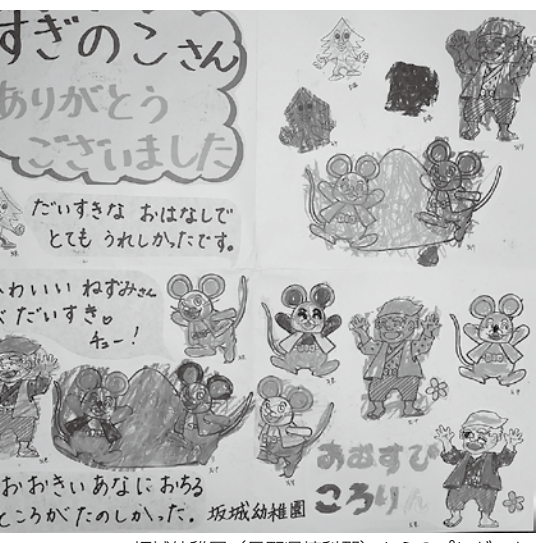 すぎのこさん
ありがとう
ございました
だいすきな おはなしで
とても うれしかったです。
かわいい ねずみさん
が だいすき。
チュー!
おおきいあなにおちる
ところがたのしかった。
坂城幼稚園
おむすび
ころりん